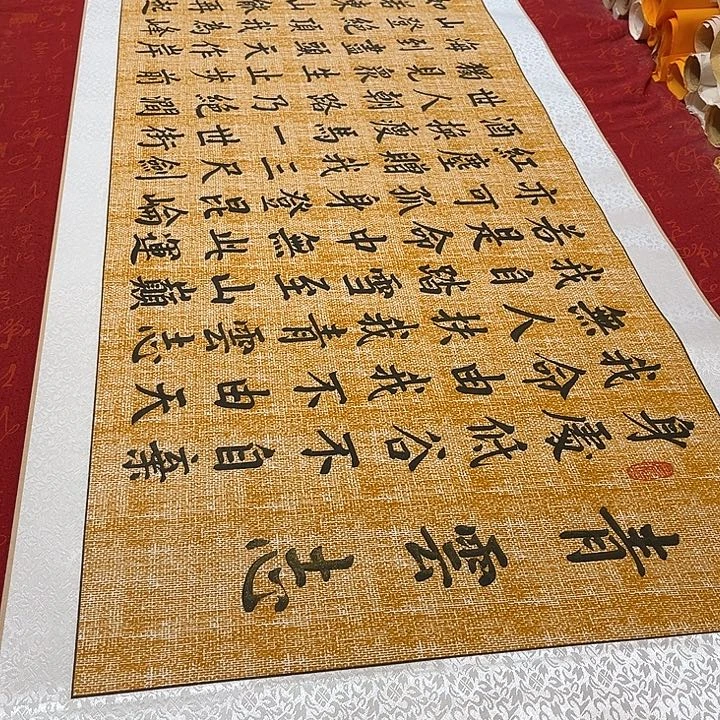 青雲志
身處低谷不自棄
我命由我不由天
無人扶我青雲志
我自踏雪至山巔
若是命中無此運
亦可孤身登昆崙
紅塵贈我三尺劍
酒換瘦馬一世
世人朝路乃絕澗
獨見泉生止步前
海到盡頭天作岸
山登絕頂我為峰
如若